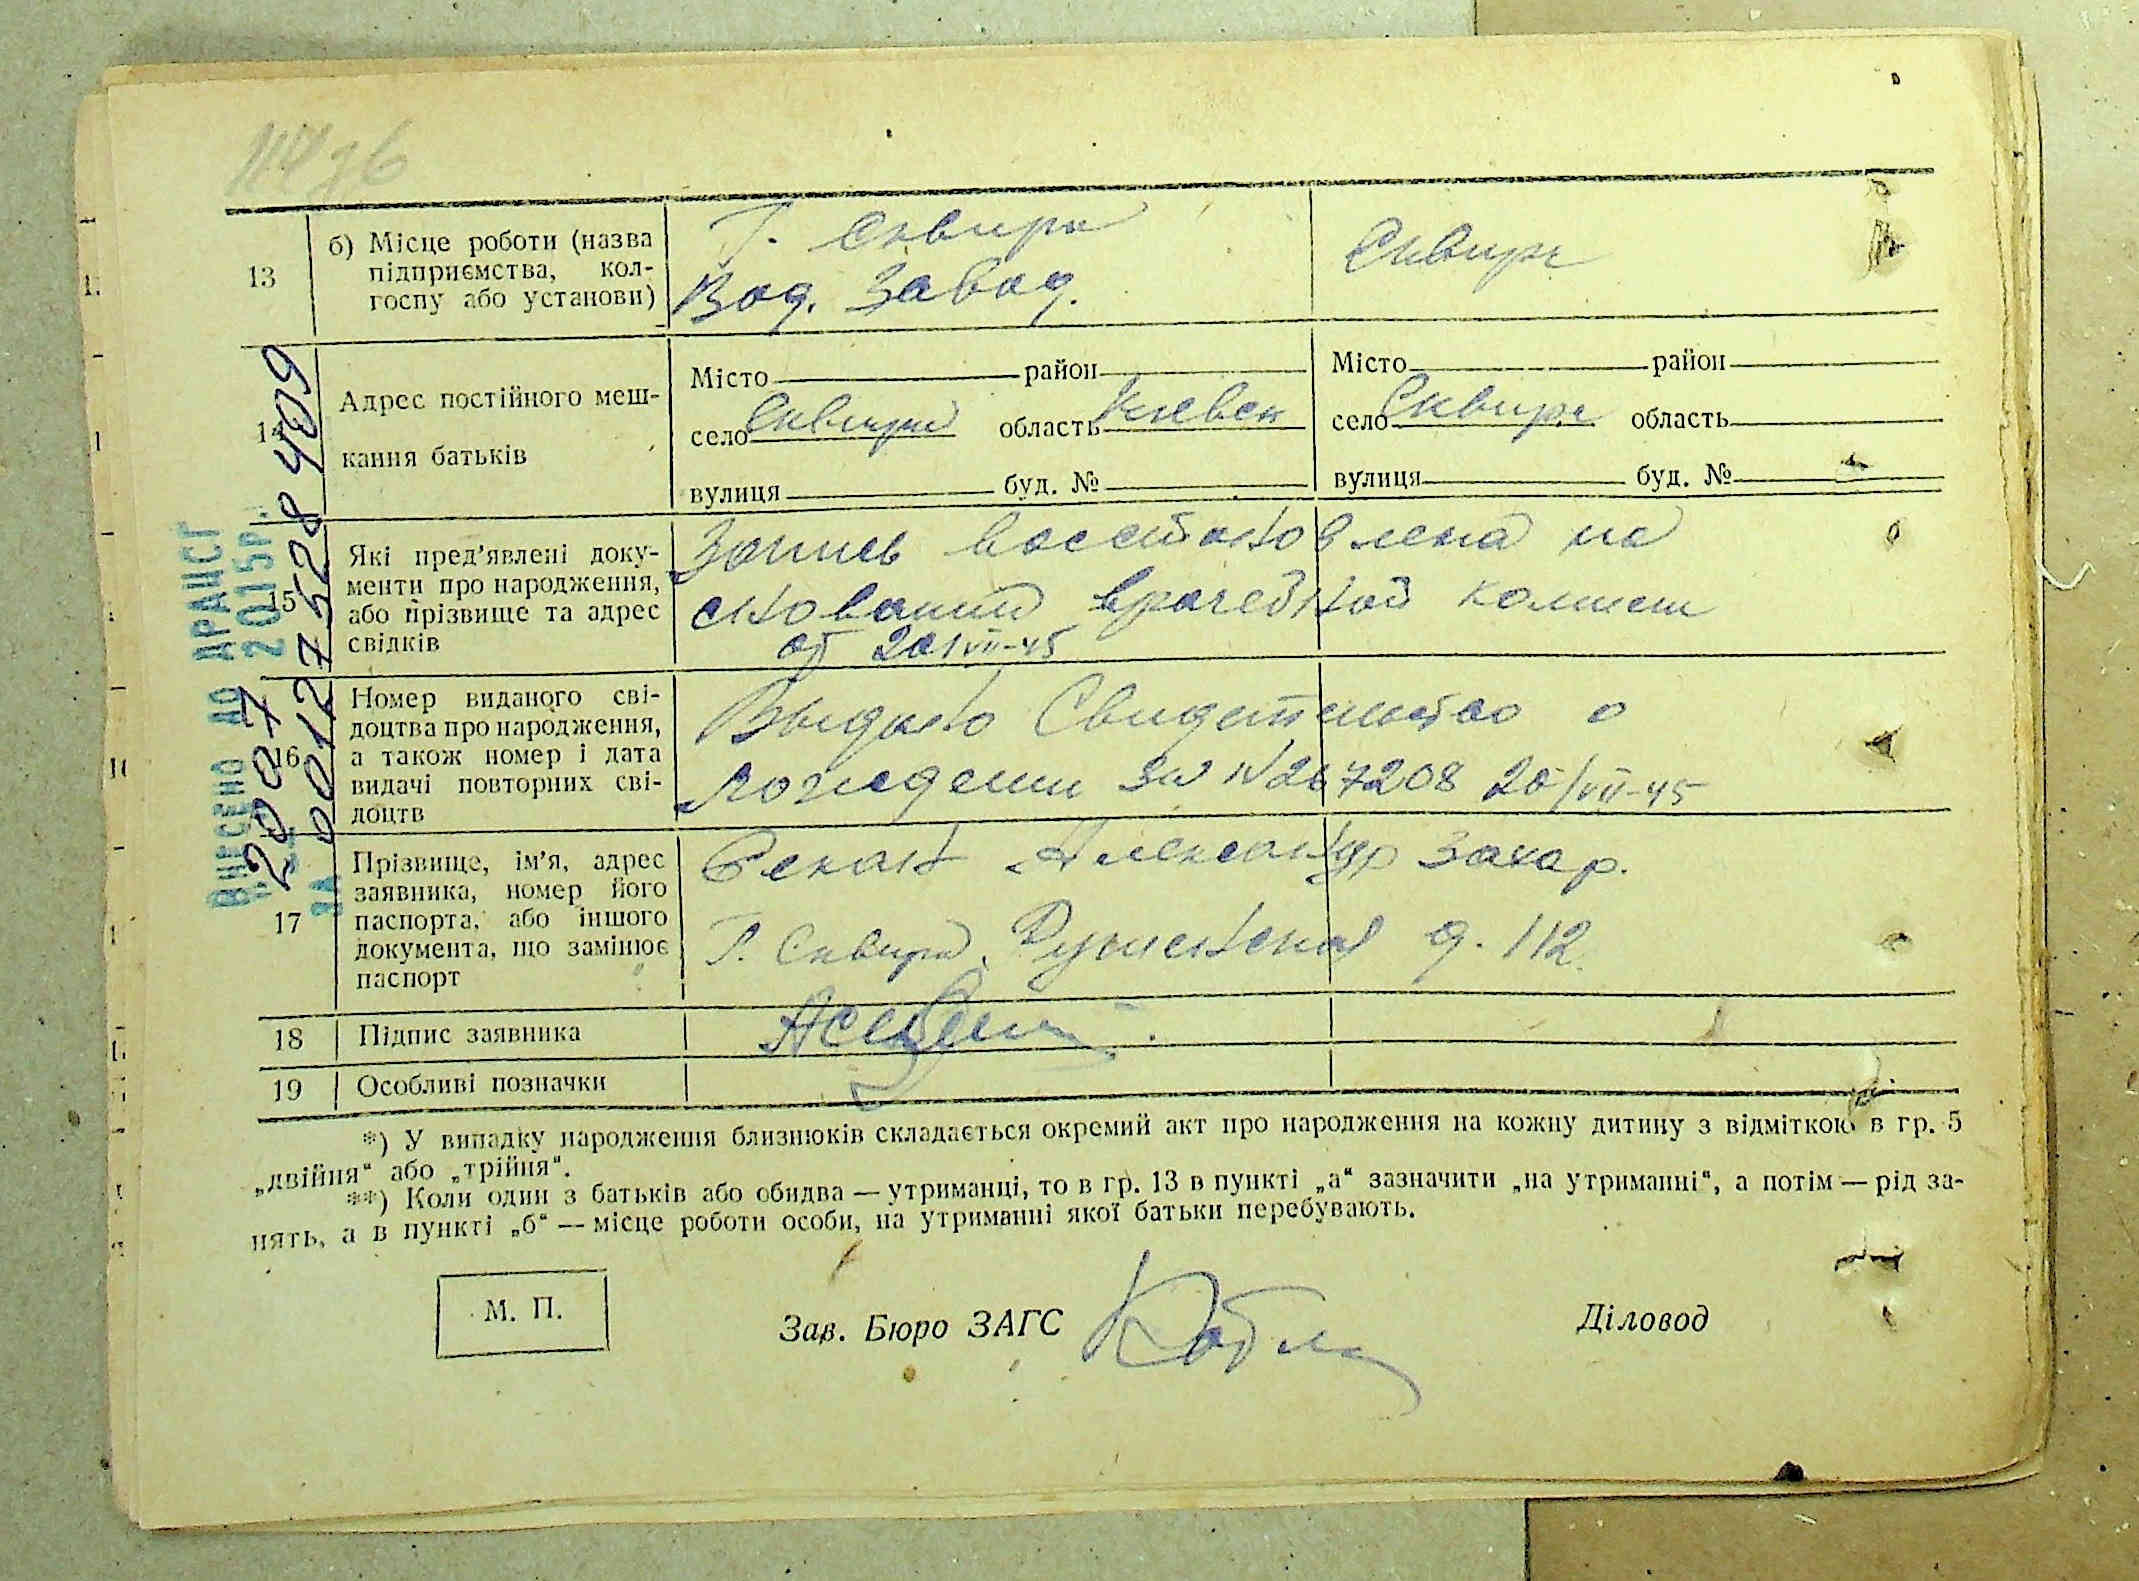 13
б) Місце роботи (назва
підприємства, кол-
госпу або установи)
Г. Сквира
Вод. Завод.
Сквира
14
Адрес постійного меш-
кання батьків
Місто район
село Сквира область Киевск
вулиця буд. №
Місто район
село Сквира область
вулиця буд. №
15
Які пред'явлені доку-
менти про народження,
або прізвище та адрес
свідків
Запись восстановлена на
основании врачебной комисии
от 20/VII-45
16
Номер виданого сві-
доцтва про народження,
а також номер і дата
видачі повторних сві-
доцтв
Выдано Свидетельство о
рождении за №267208 20/VII-45
17
Прізвище, ім'я, адрес
заявника, номер його
паспорта, або іншого
документа, що замінює
паспорт
Александр Захар.
Г. Сквира, д. 112.
18
Підпис заявника
19
Особливі позначки
*) У випадку народження близнюків складається окремий акт про народження на кожну дитину з відміткою в гр. 5
„двійня“ або „трійня“.
**) Коли один з батьків або обидва — утриманці, то в гр. 13 в пункті „а“ зазначити „на утриманні“, а потім — рід за-
нять, а в пункті „б“ — місце роботи особи, на утриманні якої батьки перебувають.
М. П.
Зав. Бюро ЗАГС
Діловод
ВНЕСЕНО ДО ДРАЦСГ
2007 2015р.
ЗА 00127528409